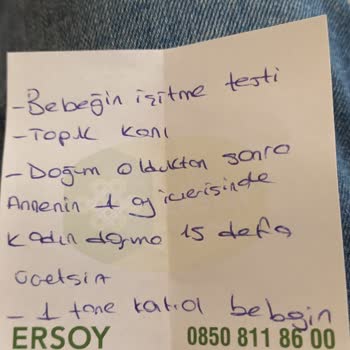 -Bebeğin işitme testi
-Topuk kanı
-Doğum olduktan sonra
Annenin 1 ay içerisinde
Kadın doğmo 15 defa
ücetsir
- 1 tane katıol bebeğin
ERSOY 0850 811 86 00